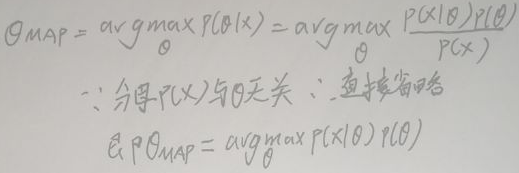 θMAP = argmax_θ P(θ|x) = argmax_θ P(x|θ)P(θ) / P(x)
∵ 分母P(x)与θ无关 ∴ 直接省略
即 θMAP = argmax_θ P(x|θ) P(θ)